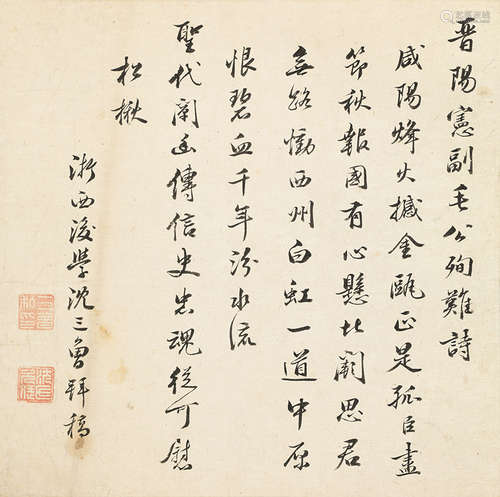 晋陽憲副毛公殉難詩
咸陽烽火撼金甌正是孤臣盡
節秋報國有心懸北闕思君
無路慟西州白虹一道中原
恨碧血千年汾水流
聖代闡幽傳信史忠魂從可慰
松楸
浙西後學沈三曾拜稿